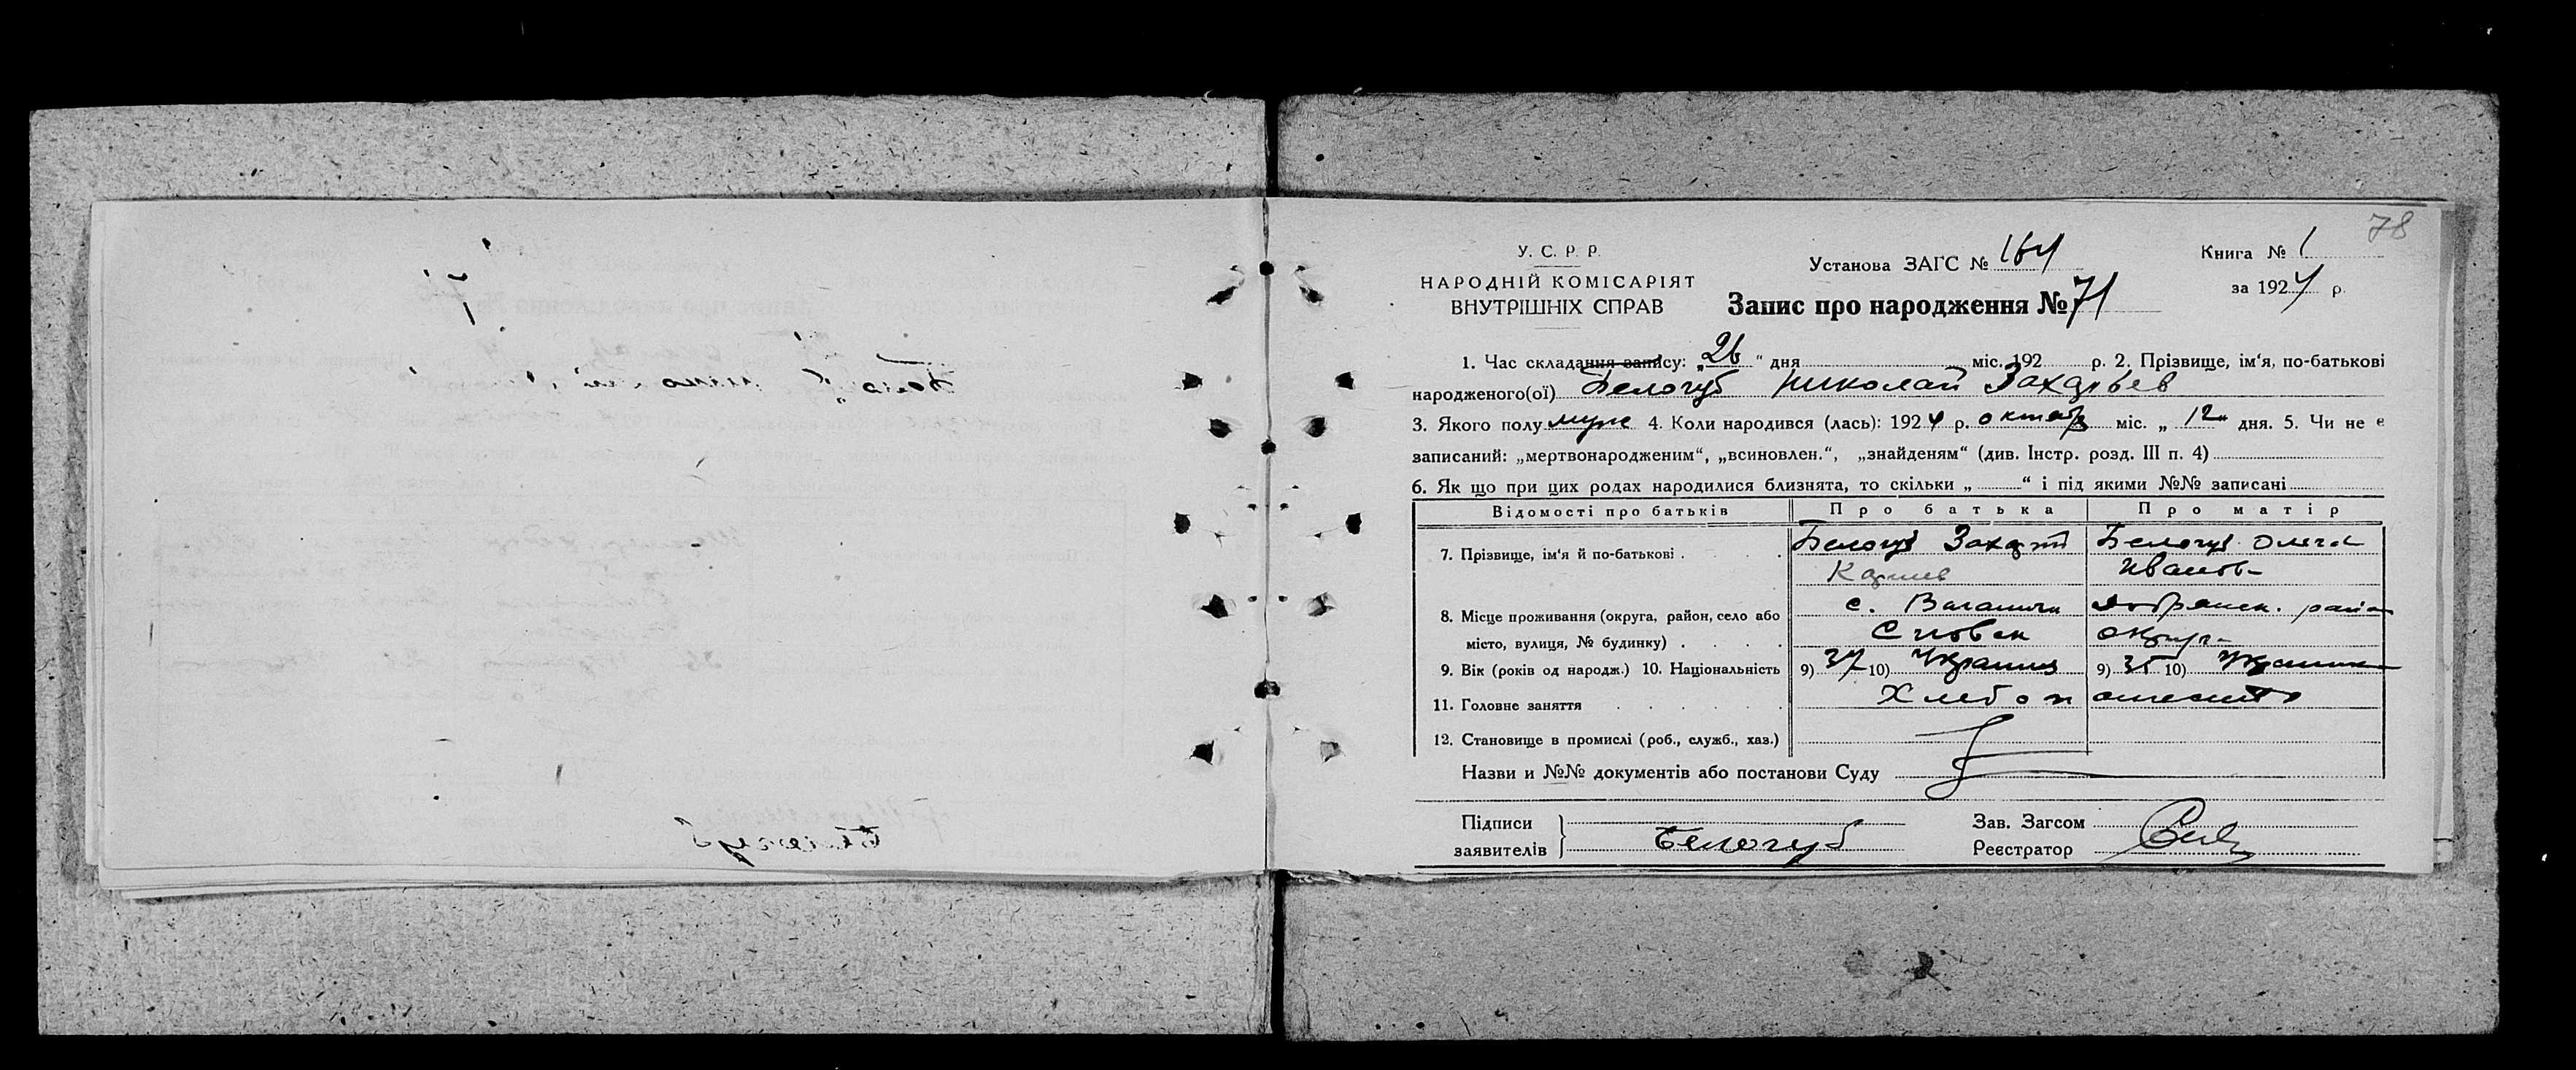 78
У. С. Р. Р.
НАРОДНІЙ КОМІСАРІЯТ
ВНУТРІШНІХ СПРАВ
Установа ЗАГС № 164
Книга № 1
за 1924 р.
Запис про народження № 71
1. Час складання запису: „26" дня міс. 192 р. 2. Прізвище, ім'я, по-батькові
народженого(ої) Белогуб Николай Захарьев
3. Якого полу муж 4. Коли народився (лась): 1924 р. октябр міс. „12" дня. 5. Чи не є
записаний: „мертвонародженим", „всиновлен.", „знайденям" (див. Інстр. розд. III п. 4)
6. Як що при цих родах народилися близнята, то скільки „ " і під якими №№ записані
Відомості про батьків Про батька Про матір
7. Прізвище, ім'я й по-батькові . . . . Белогуб Захар Белогуб Ольга
Иванов
8. Місце проживання (округа, район, село або с. Ваганичи Добрянск. район
місто, вулиця, № будинку) . . . . Сновск округ
9. Вік (років од народж.) 10. Національність 9) 37 10) Украинец 9) 35 10) Украинка
11. Головне заняття . . . . . . Хлебопашество
12. Становище в промислі (роб., служб., хаз.)
Назви и №№ документів або постанови Суду
Підписи
заявителів
Белогуб
Зав. Загсом
Реєстратор